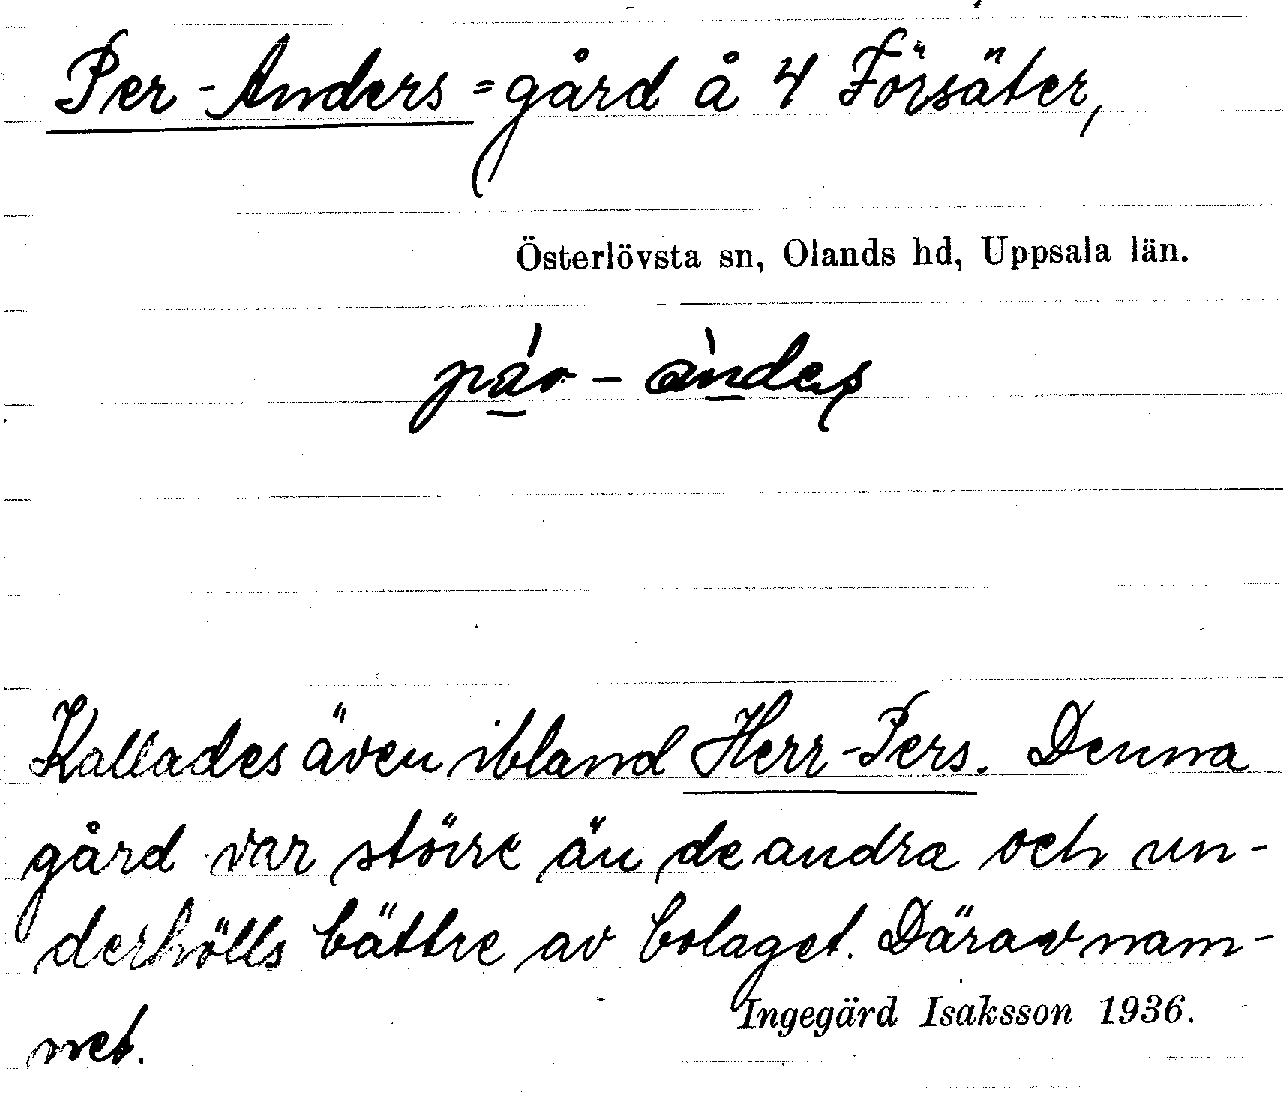 Per-Anders=gård å 4 Försäter,
Österlövsta sn, Olands hd, Uppsala län.
pár-àndeʂ
Kallades även ibland Herr-Pers. Denna
gård var större än de andra och un-
derhölls bättre av bolaget. Därav nam-
net.
Ingegärd Isaksson 1936.